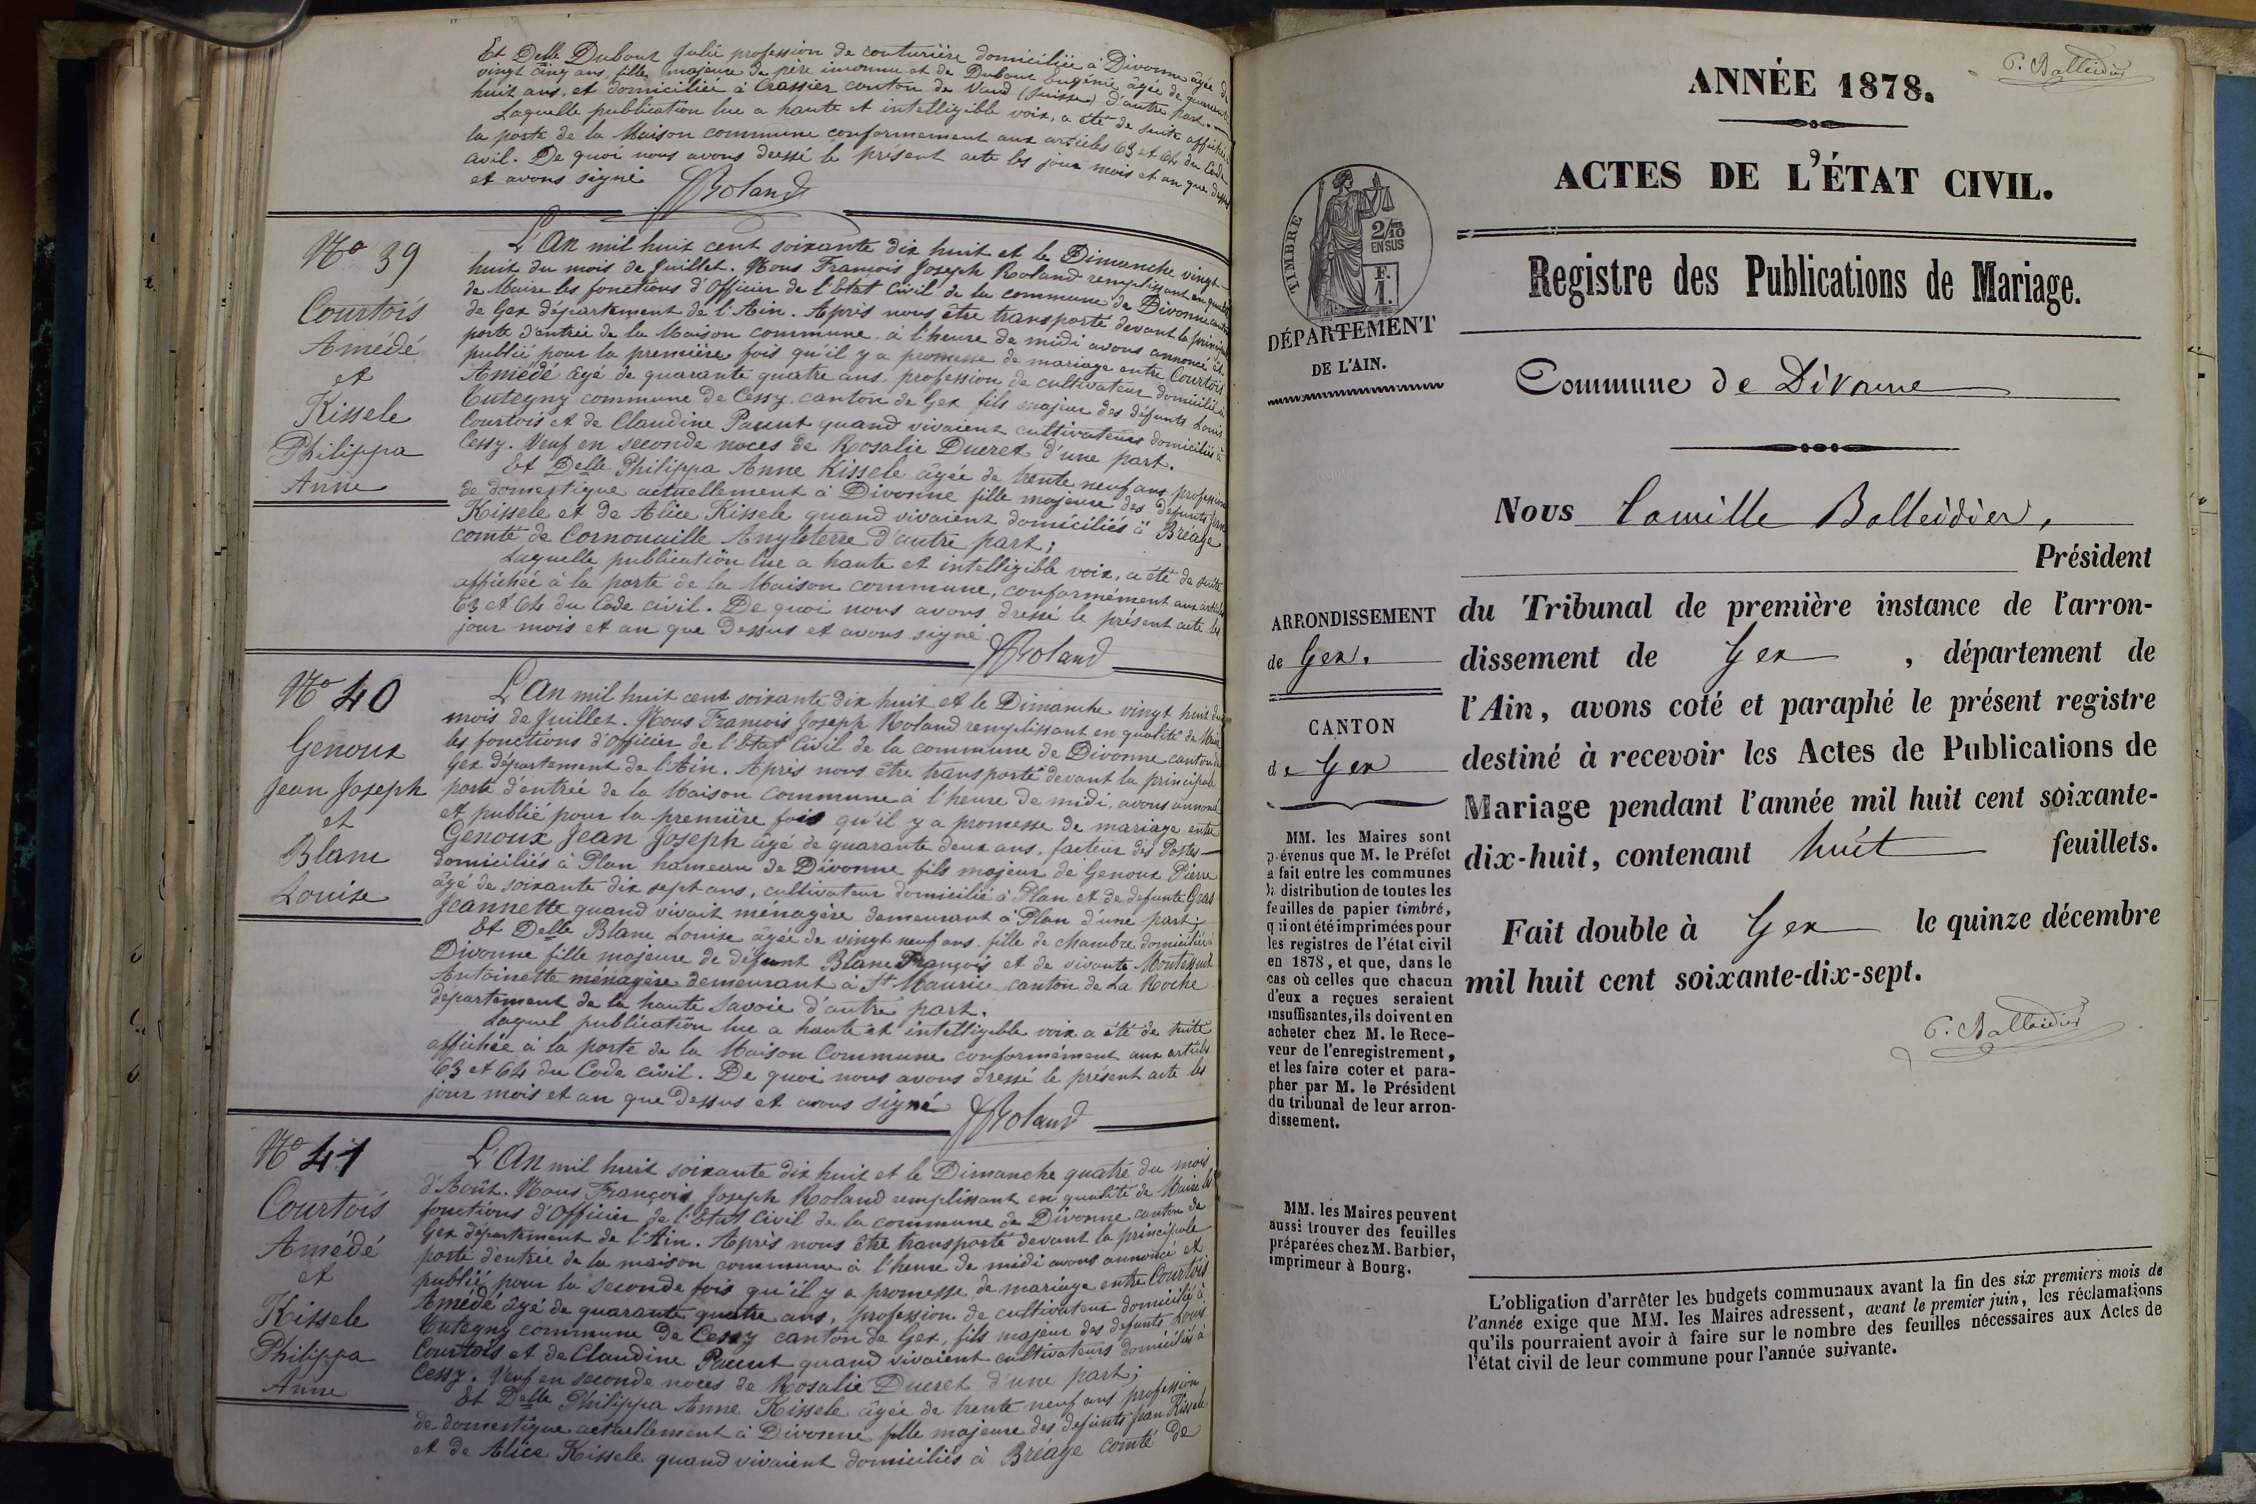 Et Delle Dubout Julie profession de couturière domiciliée à Divonne âgée de
vingt cinq ans, fille majeure de père inconnu et de Dubout Eugénie âgée de quarante
huit ans, et domiciliée à Crassier canton de Vaud (Suisse) d'autre part.
Laquelle publication lue a haute et intelligible voix, a été de suite affichée
la porte de la Maison commune conformement aux articles 63 et 64 du Code
civil. De quoi nous avons dressé le présent acte les jour mois et an que dessus
et avons signé
JRoland
No 39
Courtois
Amédé
et
Kissele
Philippa
Anne
L'An mil huit cent soixante dix huit et le Dimanche vingt-
huit du mois de Juillet. Nous François Joseph Roland remplissant en qualité
de Maire les fonctions d'Officier de l'Etat Civil de la commune de Divonne canton
de Gex département de l'Ain. Après nous être transporté devant la principale
porte d'entrée de la Maison commune, à l'heure de midi avons annoncé et
publié pour la première fois qu'il y a promesse de mariage entre Courtois
Amédé âgé de quarante quatre ans, profession de cultivateur domicilié à
Tutegny commune de Cessy, canton de Gex fils majeur des défunts Louis
Courtois et de Claudine quand vivaient cultivateurs domiciliés à
Cessy. Veuf en seconde noces de Rosalie Ducret d'une part.
Et Delle Philippa Anne Kissele âgée de trente neuf ans profession
de domestique actuellement à Divonne fille majeure des défunts Jean
Kissele et de Alice Kissele quand vivaient domiciliés à Bréage
comté de Cornouaille Angleterre d'autre part;
Laquelle publication lue a haute et intelligible voix, a été de suite
affichée à la porte de la Maison commune, conformément aux articles
63 et 64 du Code civil. De quoi nous avons dressé le présent acte les
jour mois et an que dessus et avons signé
JRoland
No 40
Genoux
Jean Joseph
et
Blanc
Louise
L'An mil huit cent soixante dix huit et le Dimanche vingt huit du
mois de Juillet. Nous François Joseph Roland remplissant en qualité de Maire
les fonctions d'Officier de l'Etat Civil de la commune de Divonne canton de
Gex département de l'Ain. Après nous être transporté devant la principale
porte d'entrée de la Maison commune à l'heure de midi, avons annoncé
et publié pour la première fois qu'il y a promesse de mariage entre
Genoux Jean Joseph âgé de quarante deux ans, facteur des Postes
domiciliés à Plan hameau de Divonne fils majeur de Genoux Pierre
âgé de soixante dix sept ans, cultivateur domicilié à Plan et de defunte Gras
Jeannette quand vivait ménagère demeurant à Plan d'une part;
Et Delle Blanc Louise âgée de vingt neuf ans fille de chambre domiciliée à
Divonne fille majeure de défunt Blanc François et de vivante
Antoinette ménagère demeurant à St Maurice canton de La Roche
département de la haute Savoie d'autre part.
Laquel publication lue a haute et intelligible voix a été de suite
affichée à la porte de la Maison Commune conformément aux articles
63 et 64 du Code civil. De quoi nous avons dressé le présent acte les
jour mois et an que Dessus et avons signé
JRoland
No 41
Courtois
Amédé
et
Kissele
Philippa
Anne
L'An mil huit soixante dix huit et le Dimanche quatre du mois
d'Août. Nous François Joseph Roland remplissant en qualité de Maire les
fonctions d'Officier de l'Etat Civil de la commune de Divonne canton de
Gex département de l'Ain. Après nous être transporté devant la principale
porte d'entrée de la maison commune à l'heure de midi avons annoncé et
publié pour la seconde fois qu'il y a promesse de mariage entre Courtois
Amédé âgé de quarante quatre ans, profession de cultivateur domicilié à
Tutegny commune de Cessy canton de Gex, fils majeur des defunts Louis
Courtois et de Claudine quand vivaient cultivateurs domiciliés à
Cessy. Veuf en seconde noces de Rosalie Ducret d'une part;
Et Delle Philippa Anne Kissele âgée de trente neuf ans profession
de domestique actuellement à Divonne fille majeure des defunts Jean Kissele
et de Alice Kissele quand vivaient domiciliés à Bréage comté de
C. Balleidier
ANNÉE 1878.
ACTES DE L'ÉTAT CIVIL.
TIMBRE
2/10
EN SUS
F.
1.
DÉPARTEMENT
DE L'AIN.
Registre des Publications de Mariage.
Commune de Divonne
Nous Camille Balleidier,
Président
ARRONDISSEMENT
de Gex.
CANTON
de Gex
du Tribunal de première instance de l'arron-
dissement de Gex , département de
l'Ain, avons coté et paraphé le présent registre
destiné à recevoir les Actes de Publications de
Mariage pendant l'année mil huit cent soixante-
dix-huit, contenant huit feuillets.
Fait double à Gex le quinze décembre
mil huit cent soixante-dix-sept.
C. Balleidier
MM. les Maires sont
prévenus que M. le Préfet
a fait entre les communes
la distribution de toutes les
feuilles de papier timbré,
qui ont été imprimées pour
les registres de l'état civil
en 1878, et que, dans le
cas où celles que chacun
d'eux a reçues seraient
insuffisantes, ils doivent en
acheter chez M. le Rece-
veur de l'enregistrement,
et les faire coter et para-
pher par M. le Président
du tribunal de leur arron-
dissement.
MM. les Maires peuvent
aussi trouver des feuilles
préparées chez M. Barbier,
imprimeur à Bourg.
L'obligation d'arrêter les budgets communaux avant la fin des six premiers mois de
l'année exige que MM. les Maires adressent, avant le premier juin, les réclamations
qu'ils pourraient avoir à faire sur le nombre des feuilles nécessaires aux Actes de
l'état civil de leur commune pour l'année suivante.